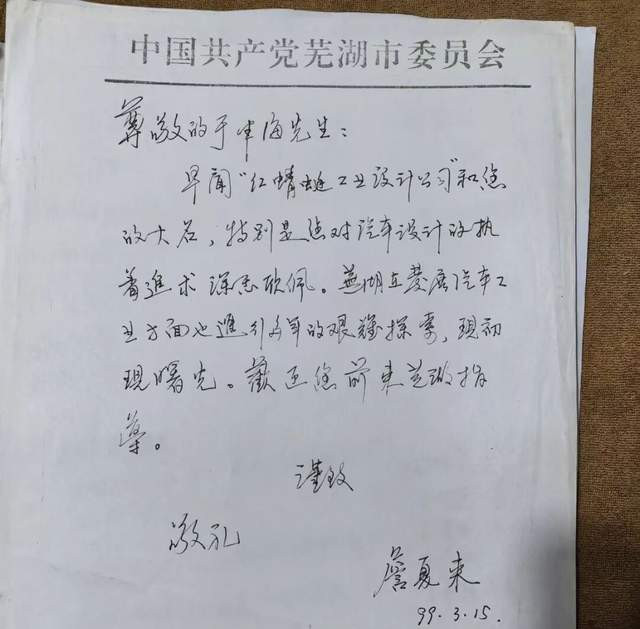 中国共产党芜湖市委员会
尊敬的于中海先生：
早闻“红蜻蜓工业设计公司”和您
的大名，特别是您对汽车设计的执
着追求深感欣佩。芜湖在发展汽车工
业方面也进行多年的艰难探索，现初
现曙光。欢迎您前来芜湖指
导。
谨致
敬礼
詹夏来
99.3.15.